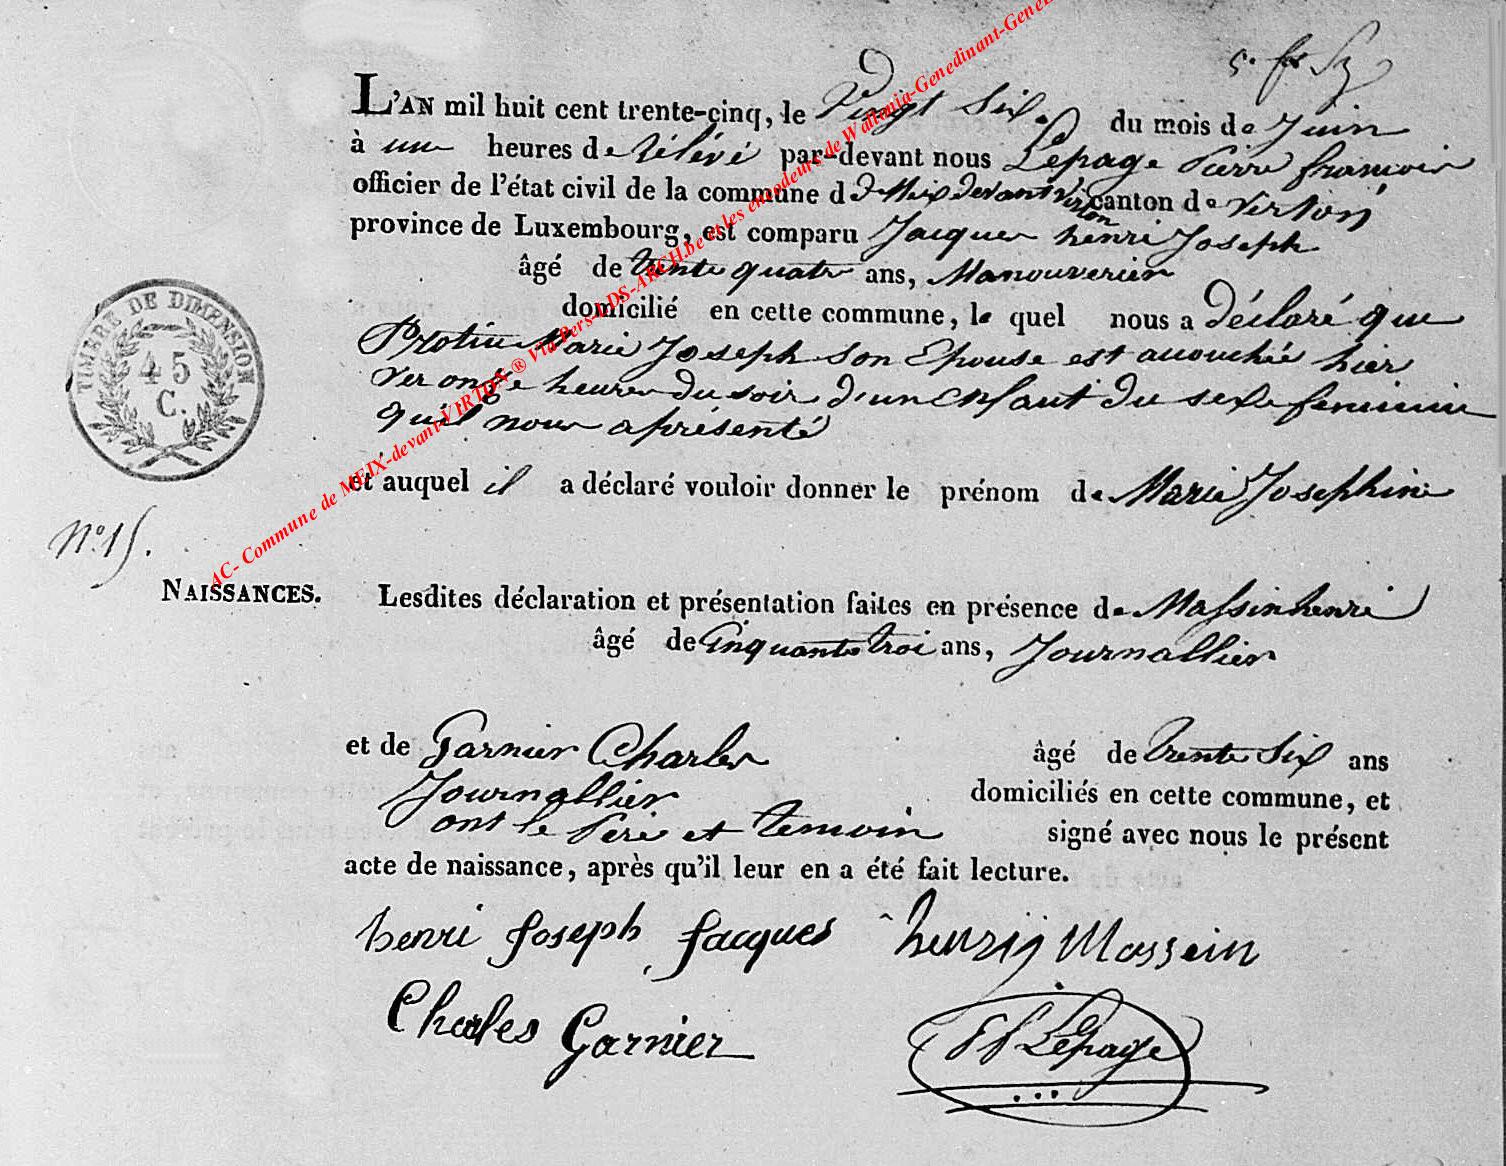 L'AN mil huit cent trente-cinq, le Vingt Six du mois de Juin
à une heures de rélévé par-devant nous Lepage Pierre françois
officier de l'état civil de la commune de Meix devant Virton canton de Virton
province de Luxembourg, est comparu Jacques henri Joseph
âgé de trente quatre ans, Manouverier
domicilié en cette commune, le quel nous a déclaré que
Protin Marie Joseph son Epouse est accouchée hier
ver onze heures du soir d'un Enfant du sexe feminin
qu'il nous a présenté
et auquel il a déclaré vouloir donner le prénom de Marie Josephine
N° 15.
NAISSANCES.
Lesdites déclaration et présentation faites en présence de Massin henri
âgé de Cinquante troi ans, Journallier
et de Garnier Charles âgé de trente Six ans
Journallier domiciliés en cette commune, et
ont le Père et temoin signé avec nous le présent
acte de naissance, après qu'il leur en a été fait lecture.
henri Joseph Jacques henrij Massein
Charles Garnier Lepage
TIMBRE DE DIMENSION
45
C.
AC- Commune de MEIX-devant-VIRTON ® Via Pers-LDS-ARCH.be et les encodeurs de Wallonia-Genedinant-Gene